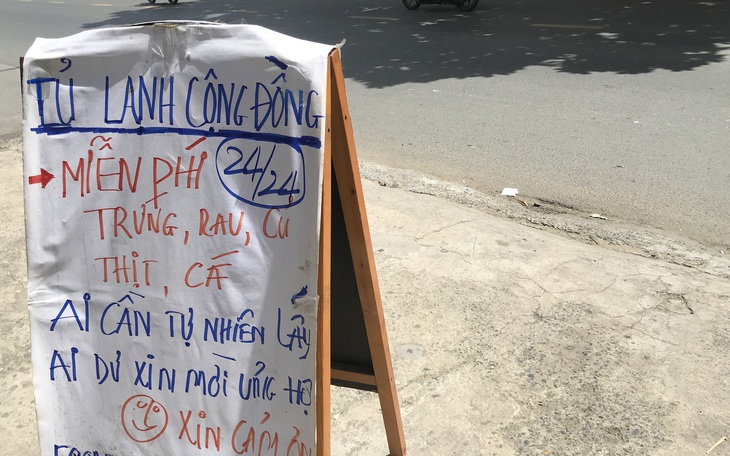 TỦ LẠNH CỘNG ĐỒNG
→ MIỄN PHÍ 24/24
TRỨNG, RAU, CỦ
THỊT, CÁ
AI CẦN TỰ NHIÊN LẤY
AI DƯ XIN MỜI ỦNG HỘ
XIN CẢM ƠN